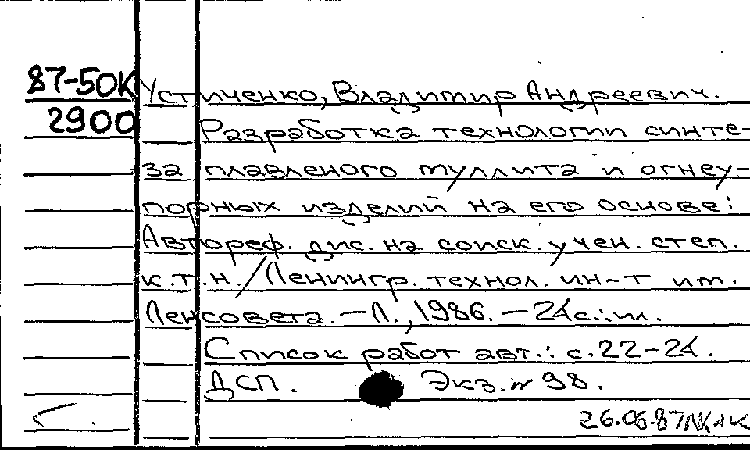 87-50К Устиченко, Владимир Андреевич.
2900 Разработка технологии синте-
за плавленого муллита и огнеу-
порных изделий на его основе:
Автореф. дис. на соиск. учен. степ.
к.т.н. / Ленингр. технол. ин-т им.
Ленсовета. — Л., 1986. — 24с.: ил.
Список работ авт.: с. 22-24.
ДСП. Экз. № 98.
26.06.87